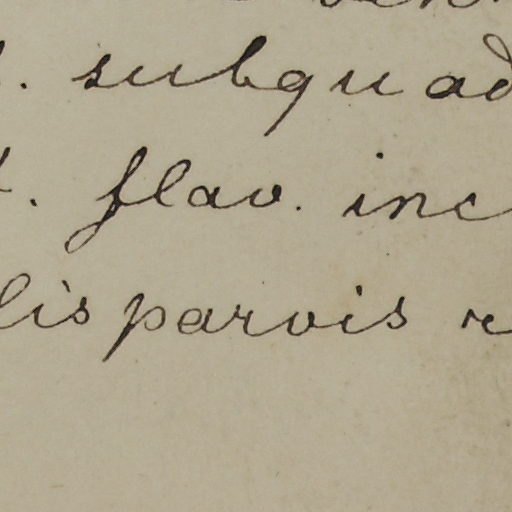 . subquad
. flav. inc
lis parvis r